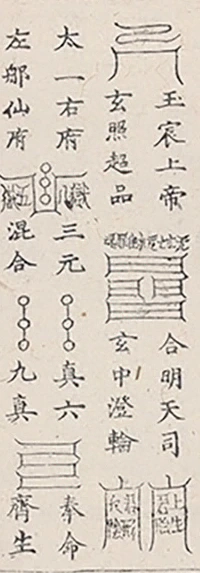 玉宸上帝
合明天司
玄照超品
玄中澄輪
太一右府
三元
真六
奉命
左郍仙府
混合
九真
齊生